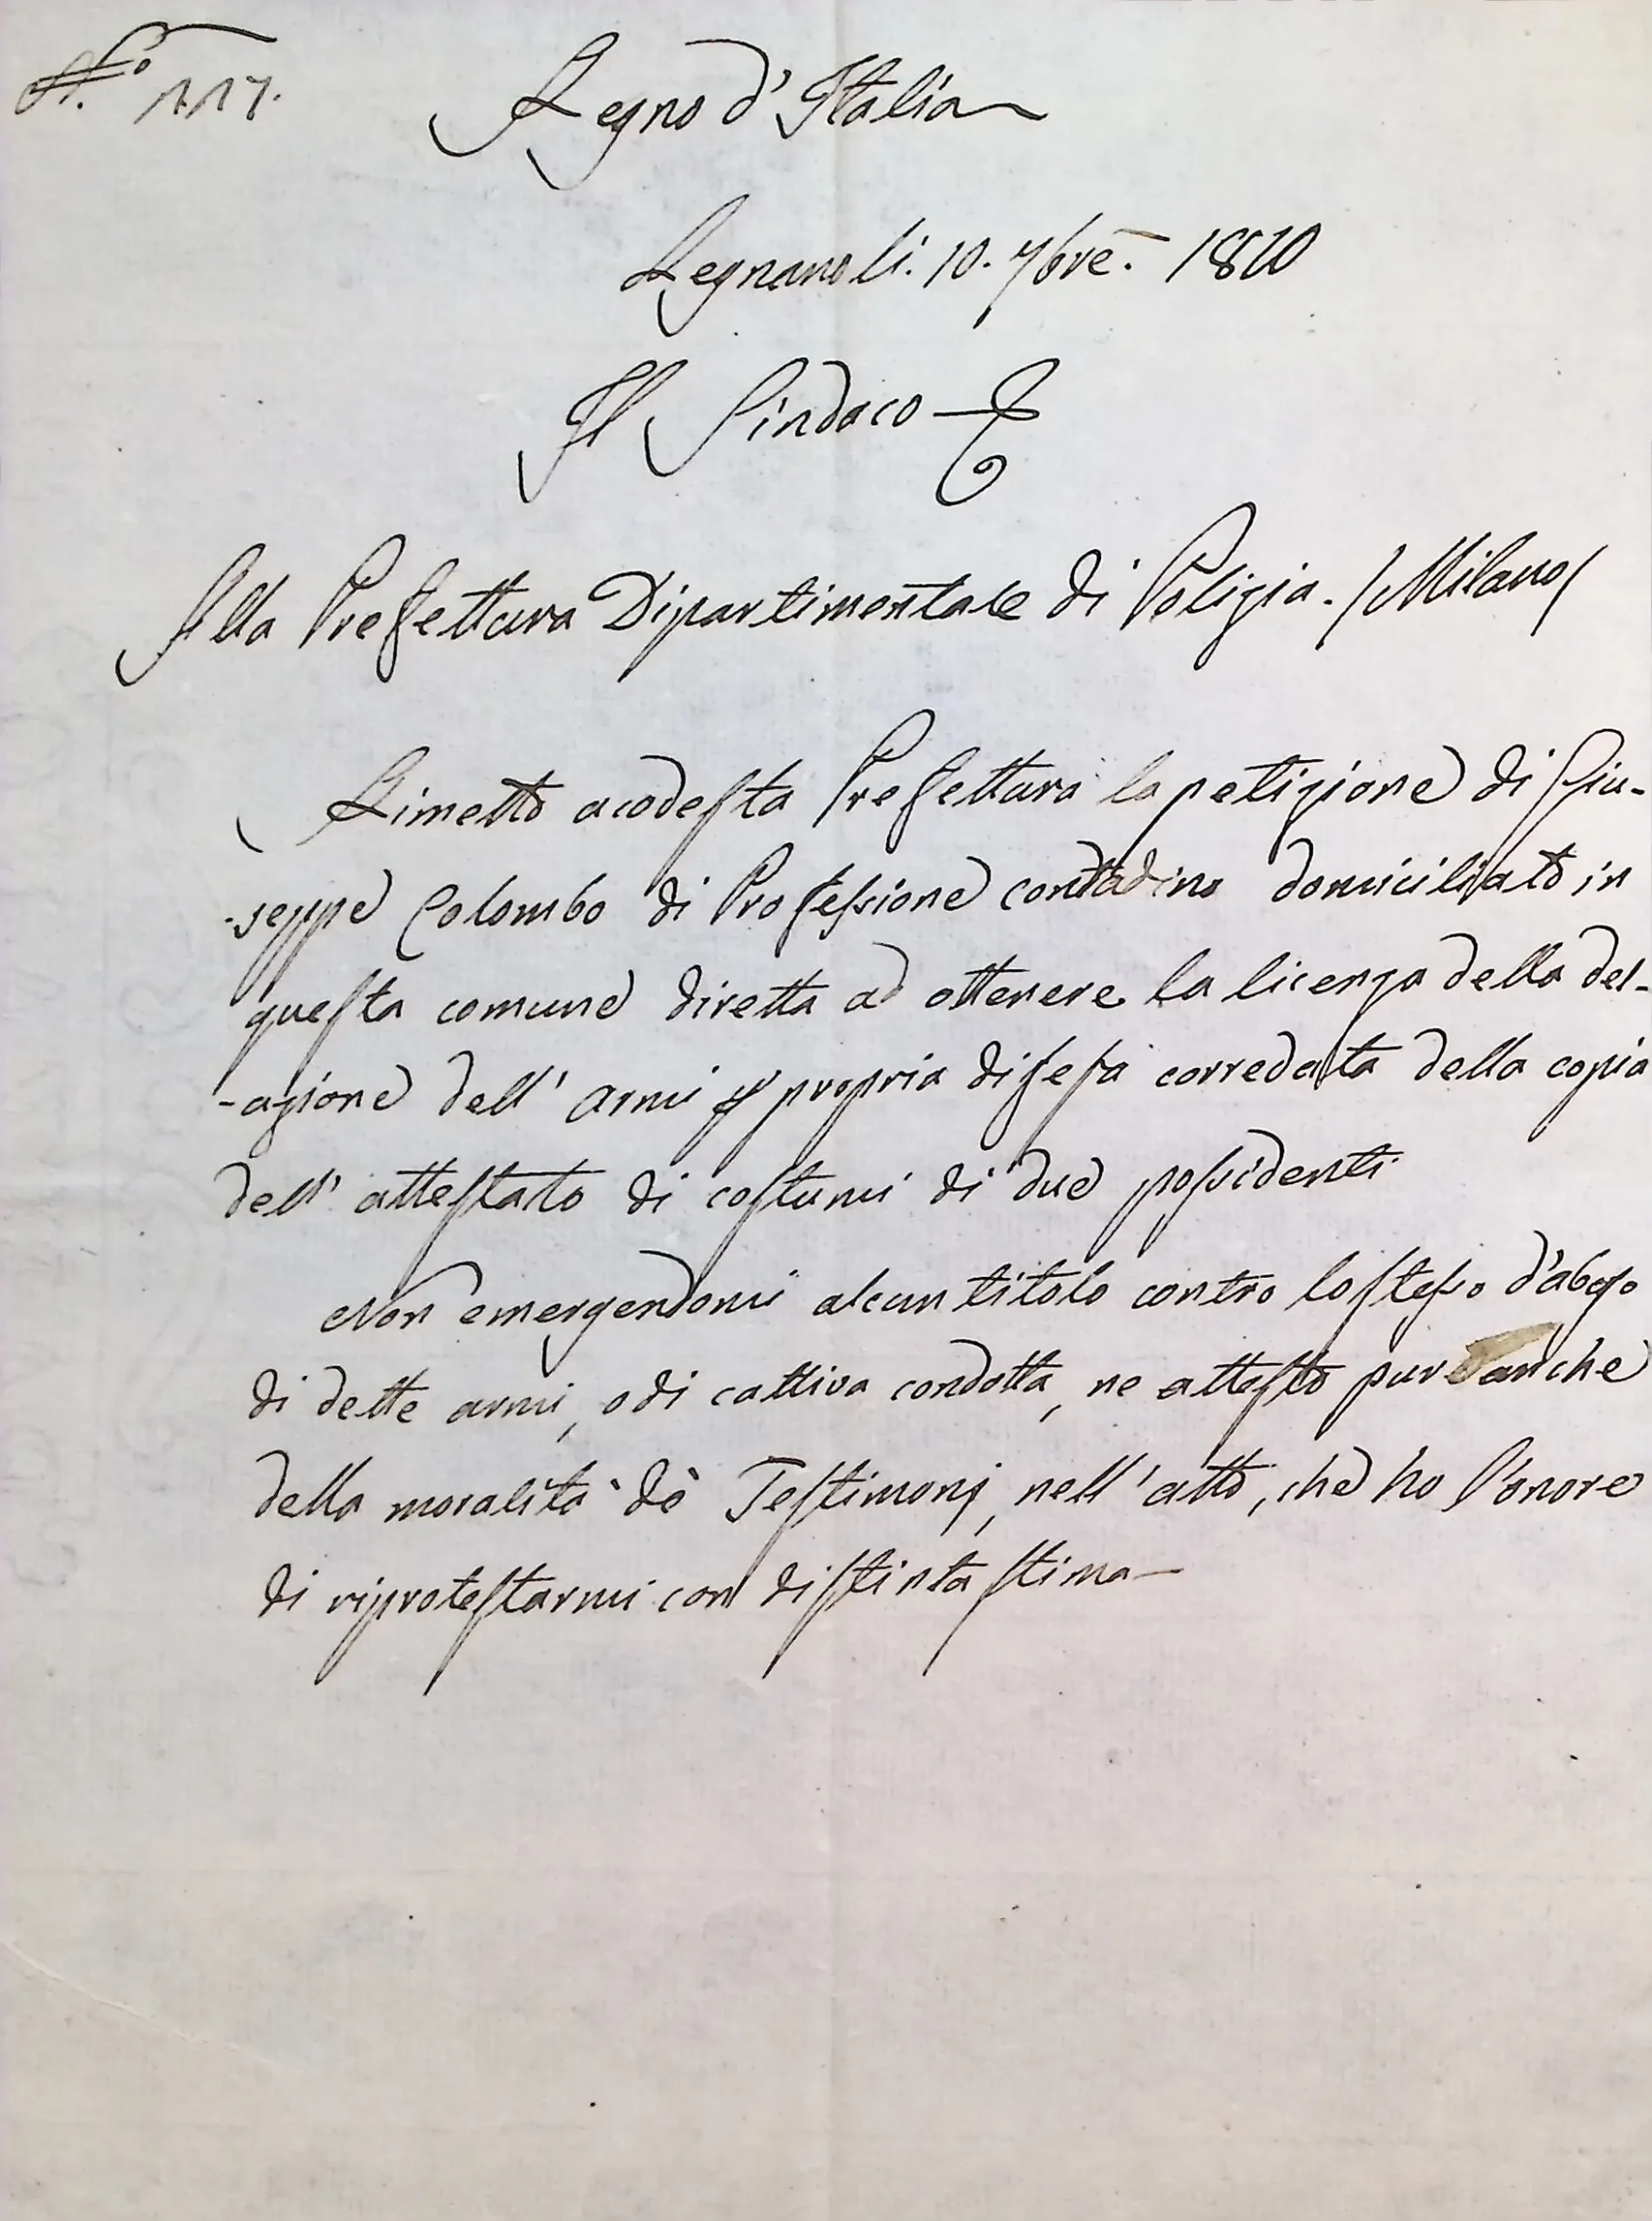 N.º 117.
Regno d'Italia
Legnano li. 10. 7bre. 1810
Il Sindaco
Alla Prefettura Dipartimentale di Polizia. /Milano/
Rimetto a codesta Prefettura la petizione di Giu-
-seppe Colombo di Professione contadino domiciliato in
questa comune diretta ad ottenere la licenza della del-
-azione dell' armi per propria difesa corredata della copia
dell' attestato di costumi di due possidenti
Non emergendomi alcun titolo contro lo stesso d'abuso
di dette armi, o di cattiva condotta, ne attesto pure anche
della moralità dè Testimonj, nell' atto, che ho l'onore
di riprotestarmi con distinta stima